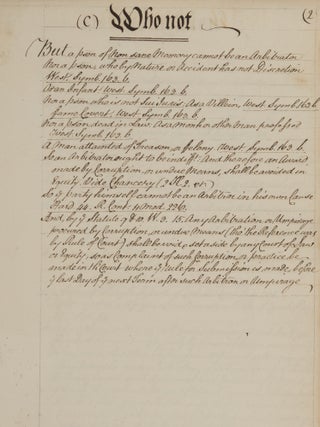 (C) Who not (2
But a pson of Non sane Memory cannot be an Arbitrator
Nor a pson, who by Nature or Accident has not Discretion
West. Symb. 163. b.
Or an Infant. West. Symb. 163. b.
Nor a pson, who is not Sui Juris; As a Villein, West. Symb. 163 b.
Fame Covert. West. Symb. 163. b.
Nor a pson, dead in Law; As a Monk or other Man professed
West. Symb. 163. b.
A man attainted of Treason, or Felony. West. Symb. 163. b.
So an Arbitrator ought to be indifft. And therefore an Award
made by Corruption, or undue Means, shall be avoided in
Equity. Vide Chancery (2 K. 2. etc)
So a Party himself cannot be an Arbitror in his own Cause
Hard. 44. R. Cont. 4 Mod. 226.
And, by ye Statute 9 & 10 W. 3. 15. Any Arbitration or Umpirage
procured by Corruption, or undue Means (tho' the Reference was
by Rule of Court) shall be void, & set aside by any Court of Law
or Equity; so as Complaint of such Corruption or practice be
made in the Court where ye Rule for Submission is made, before
ye last Day of ye next Term after such Arbitron or Umpirage